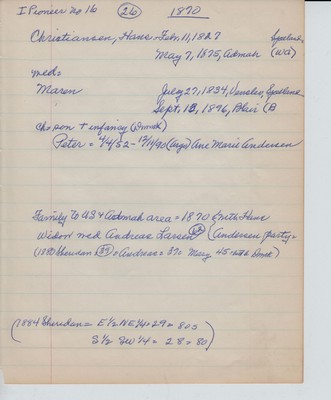 I Pioneer No 16 (26) 1870
Christiansen, Hans = Feb. 11, 1827
May 7, 1875, Admah (Wa)
med =
Maren July 27, 1834,
Sept. 1896, Blair (B
ch = son + infancy (Denmk)
Peter = 4/4/52 - 12/11/90 (Args) Ane Marie Andersen
Family to US & Admah area = 1870 with Hans
Widow med Andreas Larsen (Andersen party =
(1880 Sheridan = 39 = Andreas = 37 = Mary 45 = both Denmk)
(1884 Sheridan = E 1/2 NE 1/4 = 29 = 80s
S 1/2 SW 1/4 = 28 = 80)